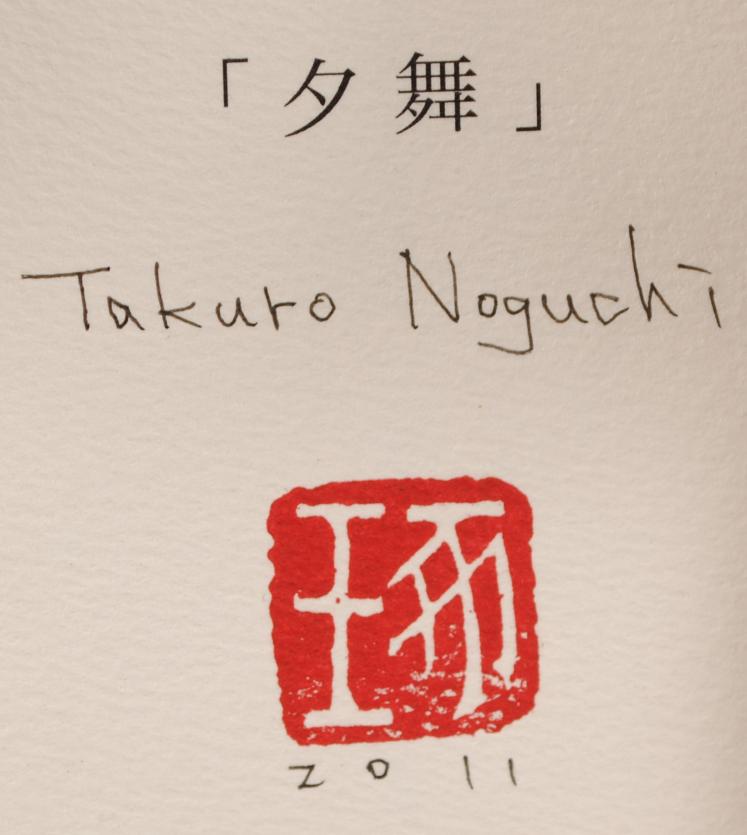 「夕舞」
Takuro Noguchi
琢
2011